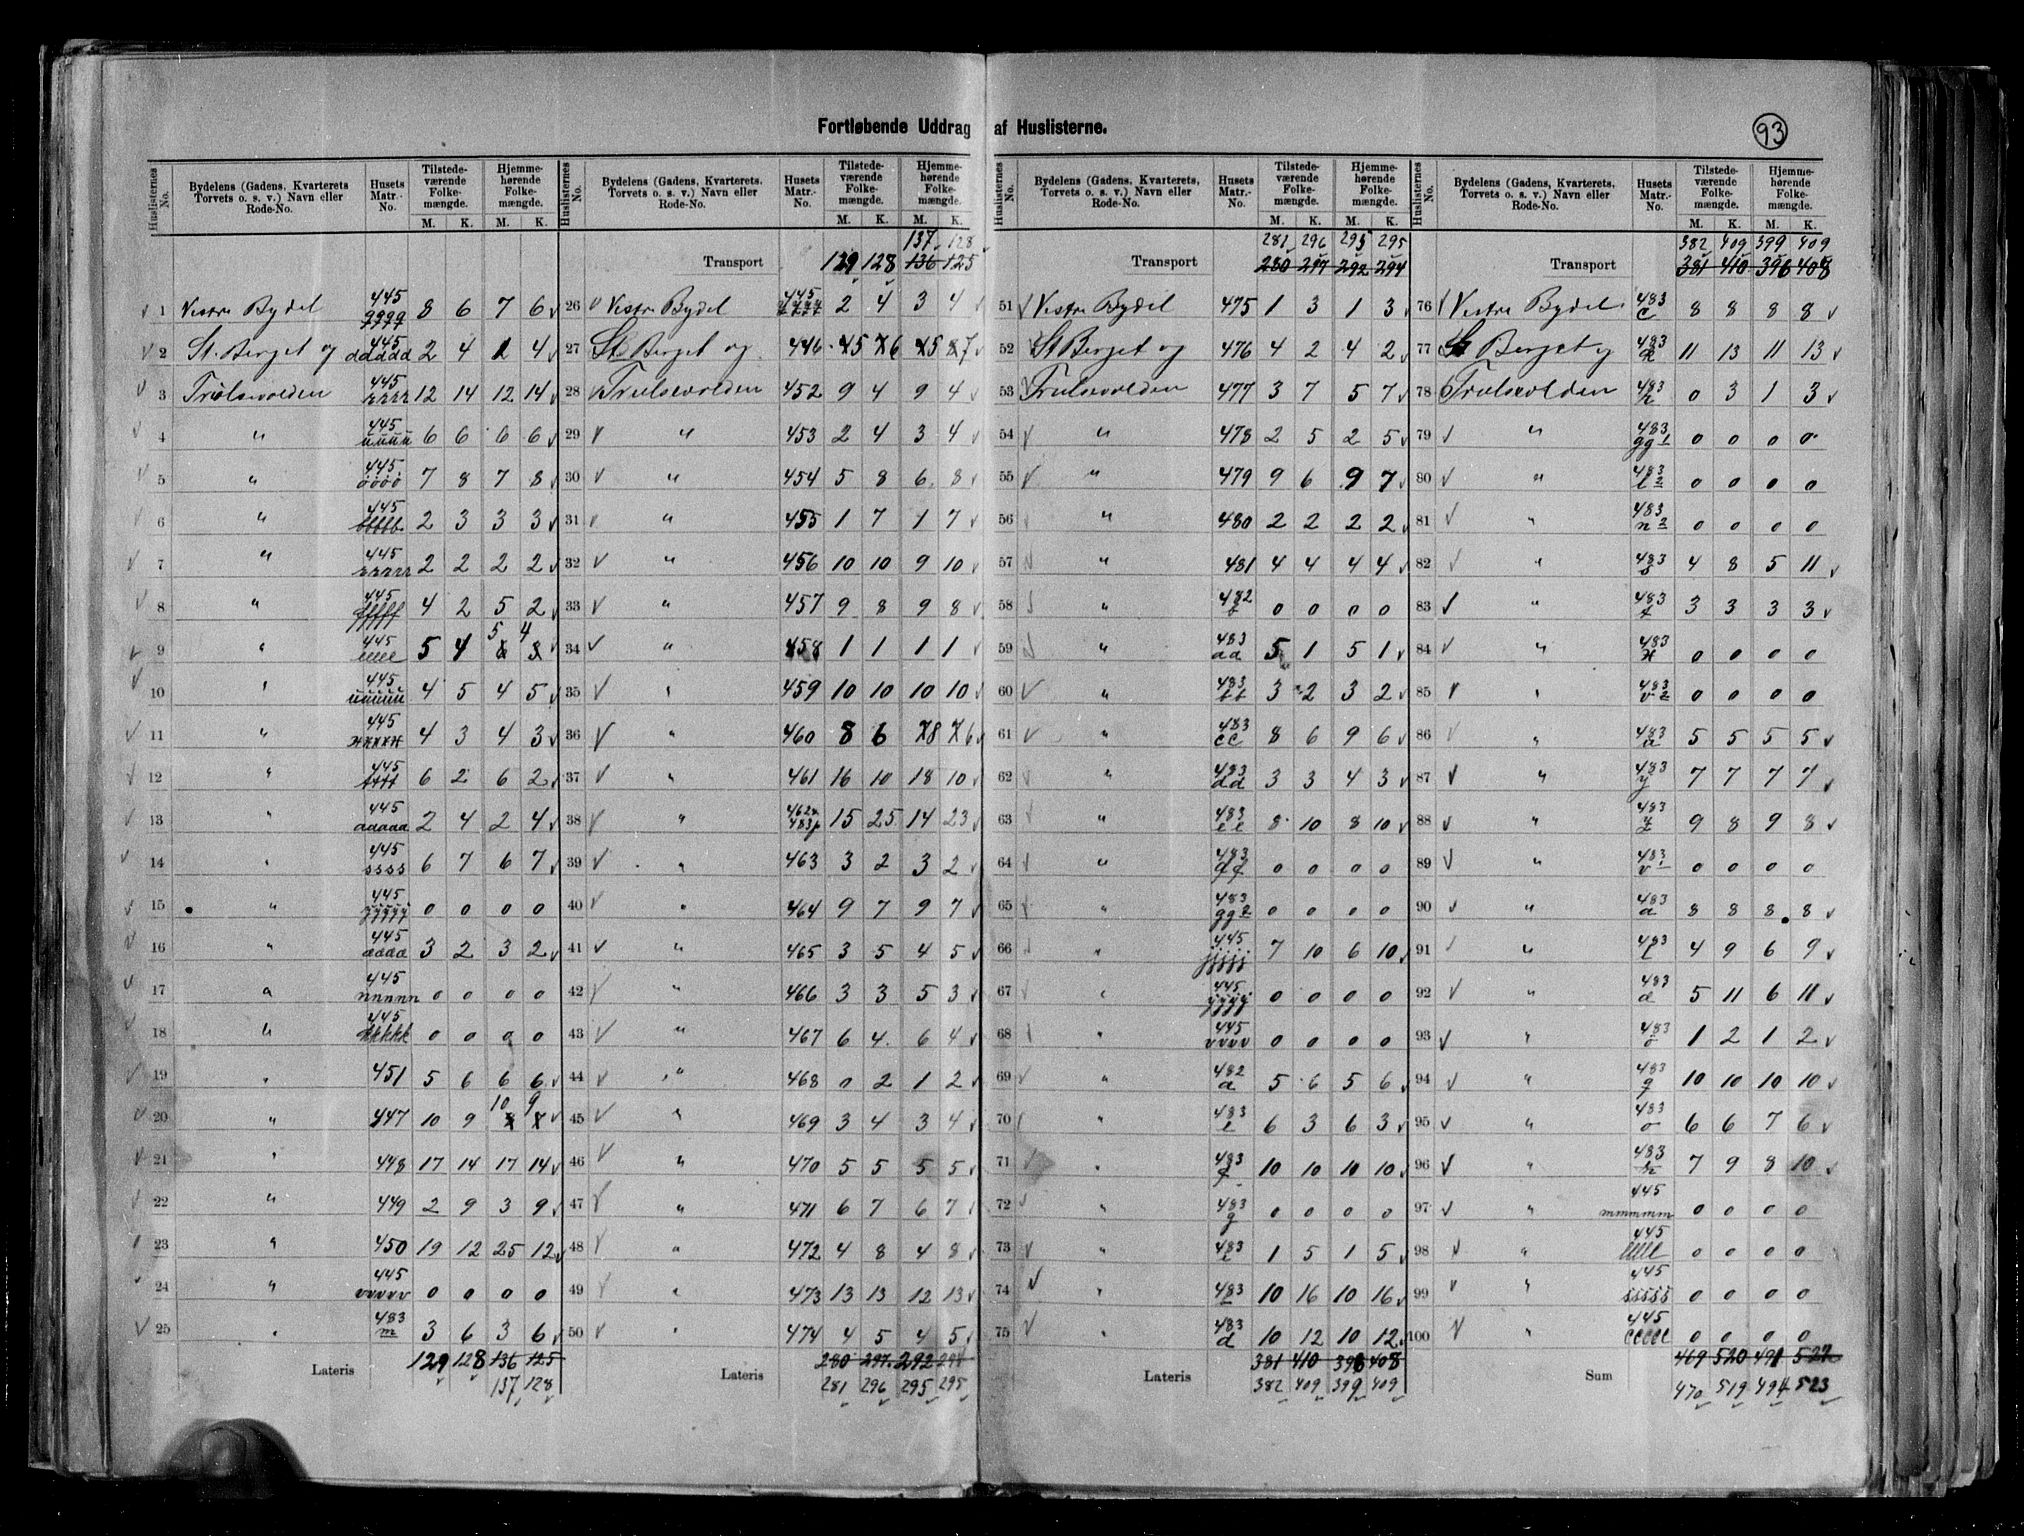 Fortløbende Uddrag af Huslisterne.
93
Huslisternes No. Bydelens (Gadens, Kvarterets Torvets o. s. v.) Navn eller Rode-No. Husets Matr.-No. Tilstedeværende Folkemængde. M. K. Hjemmehørende Folkemængde. M. K.
1 Vestre Bydel 445 8 6 7 6
2 St. Berget og 445 ddddd 2 4 1 4
3 Trulsevolden 445 12 14 12 14
4 " 445 uuuu 6 6 6 6
5 " 445 öööö 7 8 7 8
6 " 445 2 3 3 3
7 " 445 rrrrr 2 2 2 2
8 " 445 fffff 4 2 5 2
9 " 445 eeee 5 4 5 4
10 " 445 uuuuu 4 5 4 5
11 " 445 4 3 4 3
12 " 445 tttt 6 2 6 2
13 " 445 aaaaa 2 4 2 4
14 " 445 ssss 6 7 6 7
15 " 445 0 0 0 0
16 " 445 aaaa 3 2 3 2
17 " 445 nnnnn 0 0 0 0
18 " 445 kkkkk 0 0 0 0
19 " 451 5 6 6 6
20 " 447 10 9 10 9
21 " 448 17 14 17 14
22 " 449 2 9 3 9
23 " 450 19 12 25 12
24 " 445 vvvvv 0 0 0 0
25 " 483 m 3 6 3 6
Lateris 129 128 136 125
137 128
Huslisternes No. Bydelens (Gadens, Kvarterets, Torvets o. s. v.) Navn eller Rode-No. Husets Matr.-No. Tilstedeværende Folkemængde. M. K. Hjemmehørende Folkemængde. M. K.
137 128
Transport 129 128 136 125
26 Vestre Bydel 445 2 4 3 4
27 St. Berget og 446 5 6 5 7
28 Trulsevolden 452 9 4 9 4
29 " 453 2 4 3 4
30 " 454 5 8 6 8
31 " 455 1 7 1 7
32 " 456 10 10 9 10
33 " 457 9 8 9 8
34 " 458 1 1 1 1
35 " 459 10 10 10 10
36 " 460 8 6 8 6
37 " 461 16 10 18 10
38 " 462 483 15 25 14 23
39 " 463 3 2 3 2
40 " 464 9 7 9 7
41 " 465 3 5 4 5
42 " 466 3 3 5 3
43 " 467 6 4 6 4
44 " 468 0 2 1 2
45 " 469 3 4 3 4
46 " 470 5 5 5 5
47 " 471 6 7 6 7
48 " 472 4 8 4 8
49 " 473 13 13 12 13
50 " 474 4 5 4 5
Lateris 280 297 292 294
281 296 295 295
Huslisternes No. Bydelens (Gadens, Kvarterets Torvets o. s. v.) Navn eller Rode-No. Husets Matr.-No. Tilstedeværende Folkemængde. M. K. Hjemmehørende Folkemængde. M. K.
281 296 295 295
Transport 280 297 292 294
51 Vestre Bydel 475 1 3 1 3
52 St Berget og 476 4 2 4 2
53 Trulsevolden 477 3 7 5 7
54 " 478 2 5 2 5
55 " 479 9 6 9 7
56 " 480 2 2 2 2
57 " 481 4 4 4 4
58 " 482 b 0 0 0 0
59 " 483 aa 5 1 5 1
60 " 483 bb 3 2 3 2
61 " 483 cc 8 6 9 6
62 " 483 dd 3 3 4 3
63 " 483 ee 8 10 8 10
64 " 483 0 0 0 0
65 " 483 gg 2 0 0 0 0
66 " 445 jjjjj 7 10 6 10
67 " 445 0 0 0 0
68 " 445 vvvv 0 0 0 0
69 " 482 a 5 6 5 6
70 " 483 e 6 3 6 3
71 " 483 f 10 10 10 10
72 " 483 g 0 0 0 0
73 " 483 i 1 5 1 5
74 " 483 10 16 10 16
75 " 483 d 10 12 10 12
Lateris 381 410 396 408
382 409 399 409
Huslisternes No. Bydelens (Gadens, Kvarterets, Torvets o. s. v.) Navn eller Rode-No. Husets Matr.-No. Tilstedeværende Folkemængde. M. K. Hjemmehørende Folkemængde. M. K.
382 409 399 409
Transport 381 410 396 408
76 Vestre Bydel 483 c 8 8 8 8
77 St Berget og 483 11 13 11 13
78 Trulsevolden 483 h 0 3 1 3
79 " 483 gg 1 0 0 0 0
80 " 483 l 2 0 0 0 0
81 " 483 n 2 0 0 0 0
82 " 483 s 4 8 5 11
83 " 483 t 3 3 3 3
84 " 483 0 0 0 0
85 " 483 v 2 0 0 0 0
86 " 483 5 5 5 5
87 " 483 y 7 7 7 7
88 " 483 z 9 8 9 8
89 " 483 v 1 0 0 0 0
90 " 483 a 8 8 8 8
91 " 483 l 4 9 6 9
92 " 483 5 11 6 11
93 " 483 1 2 1 2
94 " 483 q 10 10 10 10
95 " 483 6 6 7 6
96 " 483 7 9 8 10
97 " 445 mmmmm 0 0 0 0
98 " 445 lllll 0 0 0 0
99 " 445 sssss 0 0 0 0
100 " 445 0 0 0 0
Sum 469 520 491 522
470 519 494 523